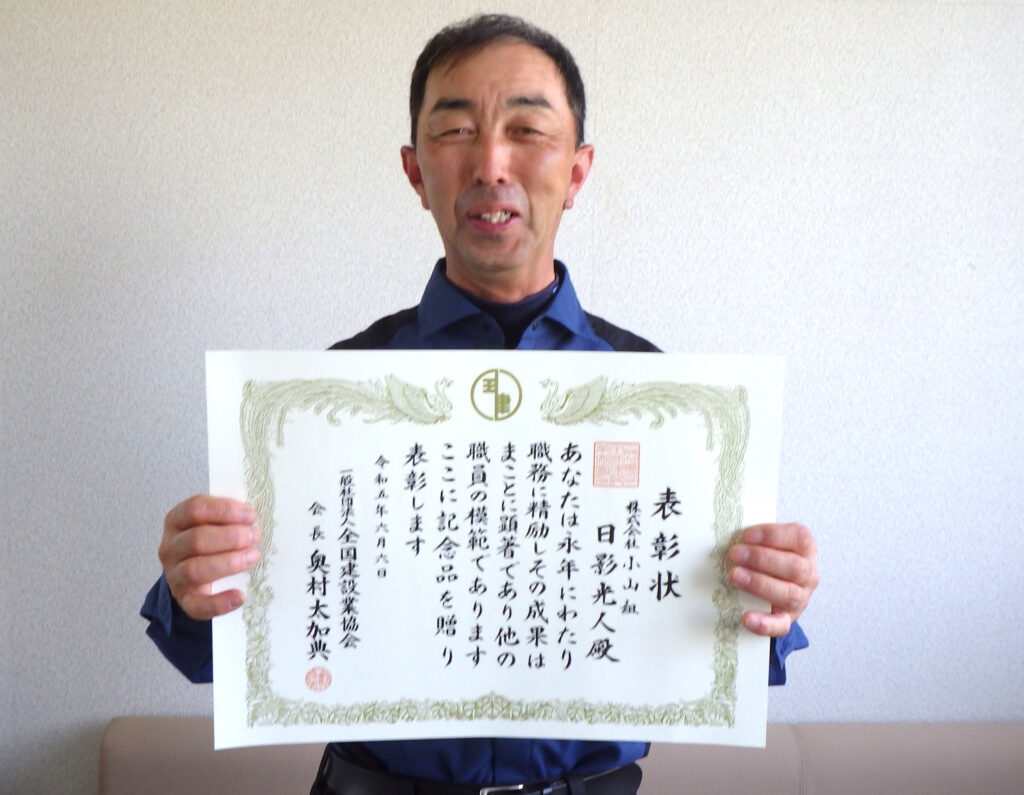 表彰状
株式会社小山組
日影光人殿
あなたは永年にわたり
職務に精励しその成果は
まことに顕著であり他の
職員の模範であります
ここに記念品を贈り
表彰します
令和五年六月六日
一般社団法人全国建設業協会
会長 奥村太加典